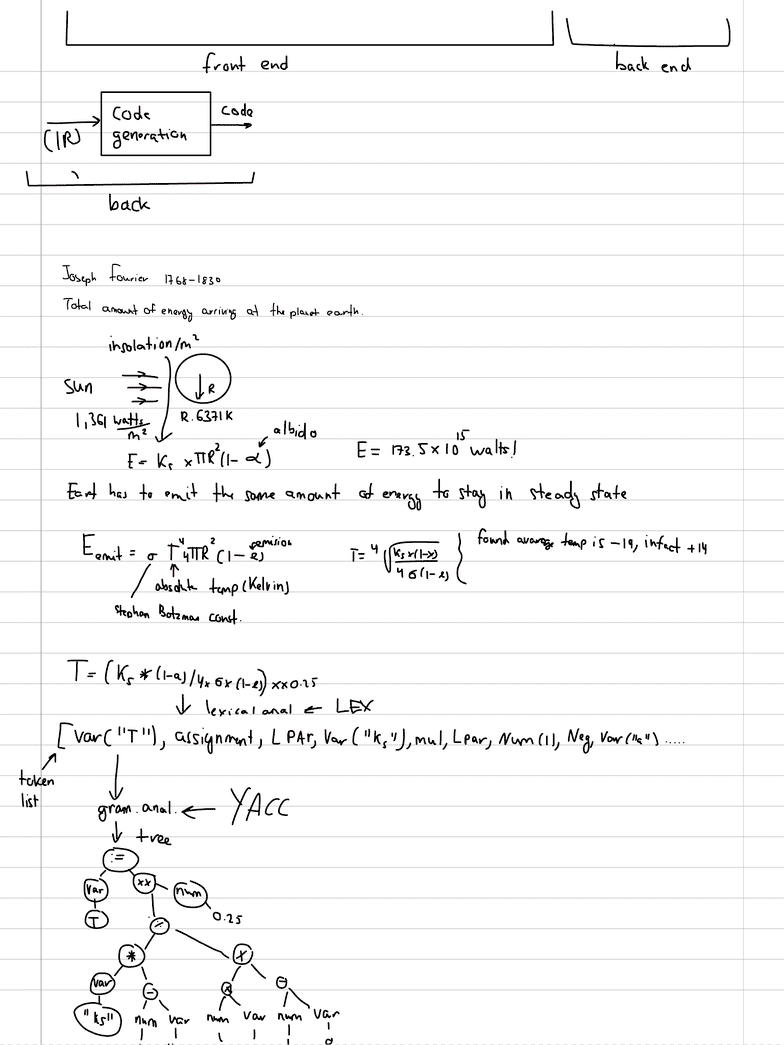 front end
back end
code
Code
generation
(IR)
back
Joseph Fourier 1768-1830
Total amount of energy arriving at the planet earth.
insolation/m²
Sun
R
1,361 watts/m²
R.6371K
albido
E = Ks x πR²(1- α)
E = 173.5 x 10^15 watts!
Eart has to emit the same amount of energy to stay in steady state
E emit = σ T⁴4πR²(1-ε)
emision
T = ⁴√(Ks x(1-α)/4σ(1-ε))
found avarage temp is -19, infact +14
absolute temp (Kelvin)
Stephan Botzman const.
T = (Ks * (1-a)/4x σx(1-ε)) xx0.25
lexical anal ← LEX
[var("T"), assignment, LPAr, Var("Ks"), mul, Lpar, Num(1), Neg, Var("a") .....
token
list
gram. anal. ← YACC
tree
:=
var xx num
T 0.25
/
* x
var - x -
"ks" num var num var num var